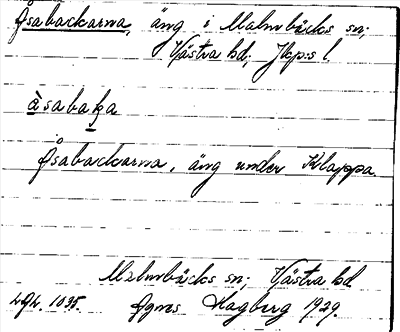 Åsabackarna, äng i Malmbäcks sn;
Västra hd; Jkp:s l
àsabaka
Åsabackarna, äng under Klappa.
Malmbäcks sn; Västra hd
Agnes Hagberg 1929